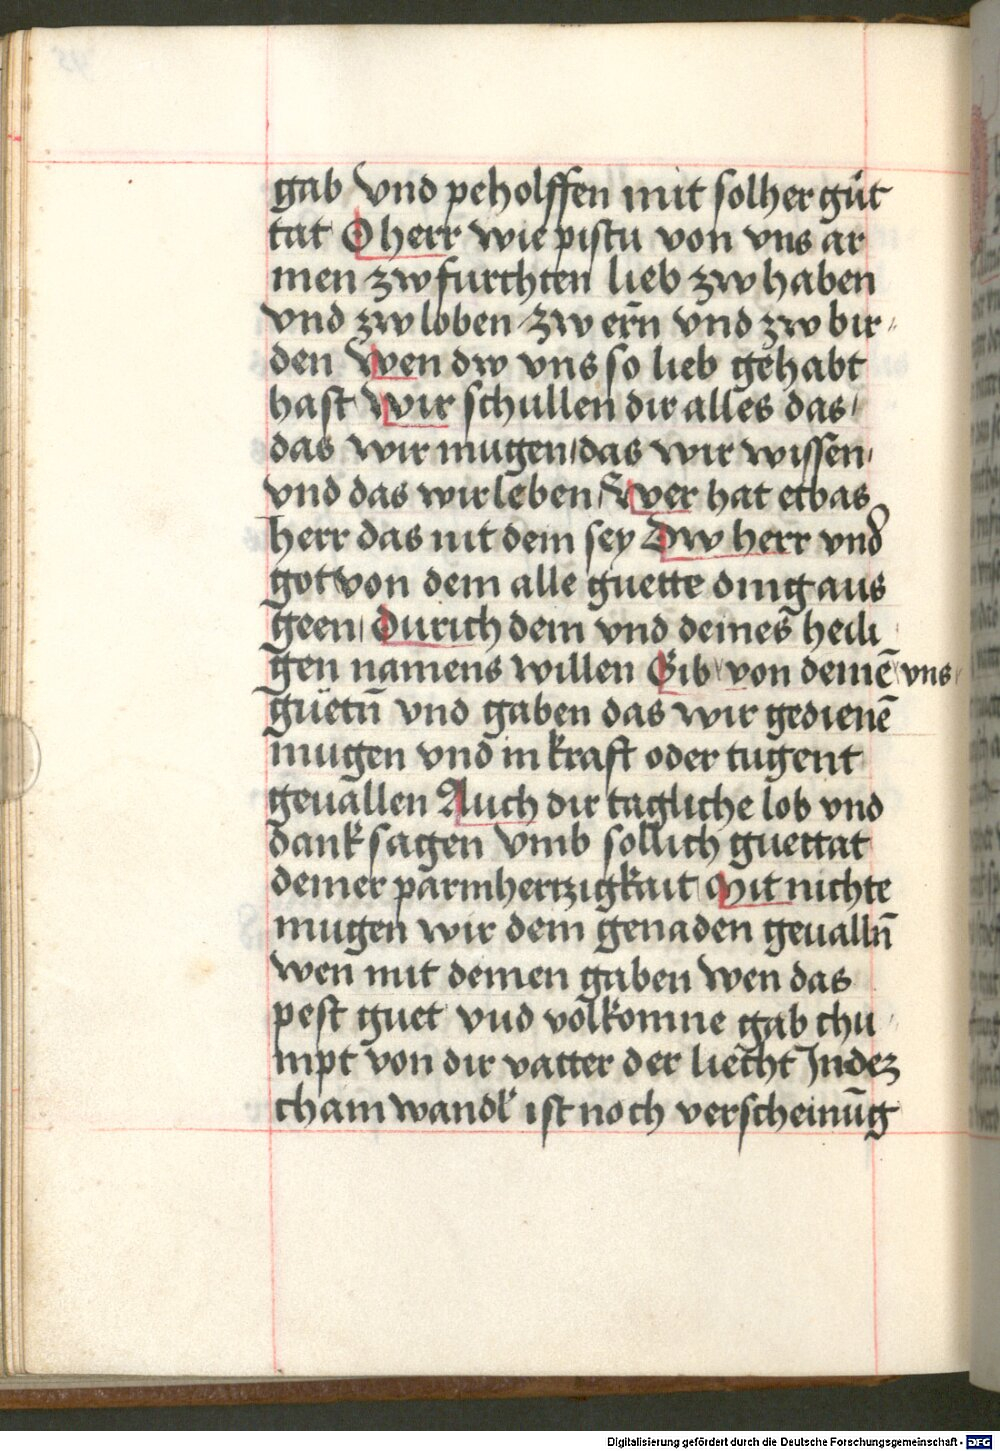 gab vnd peholffen mit solher gůt
tat O herr wie pistu von vns ar
men zw furchten lieb zw haben
vnd zw loben zw ern̄ vnd zw bir⸗
den Wen dw vns so lieb gehabt
hast Wir schullen dir alles das/
das wir mugen/das wir wissen/
vnd das wir leben/ Wer hat etbas
herr das nit dein sey Dw herr vnd
got von dem alle guette ding aus
geen/ Durich dein vnd deines heili
gen namens willen Gib von deinē vns
güetn̄ vnd gaben das wir gedienē
mugen vnd in kraft oder tugent
geuallen Auch dir tagliche lob vnd
dank sagen vmb sollich guettat
deiner parmhertzigkait Mit nichte
mugen wir dein genaden geualln̄
wen mit deinen gaben Wen das
pest guet vnd volkomne gab chu⸗
mpt von dir vatter der liecht In dez
chain wandl ist noch verscheinūg
Digitalisierung gefördert durch die Deutsche Forschungsgemeinschaft - DFG